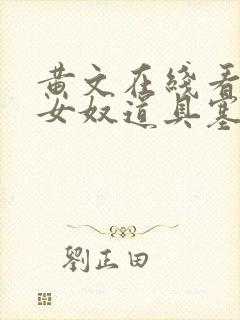 黄文在线看
女奴道具塞
刘正田